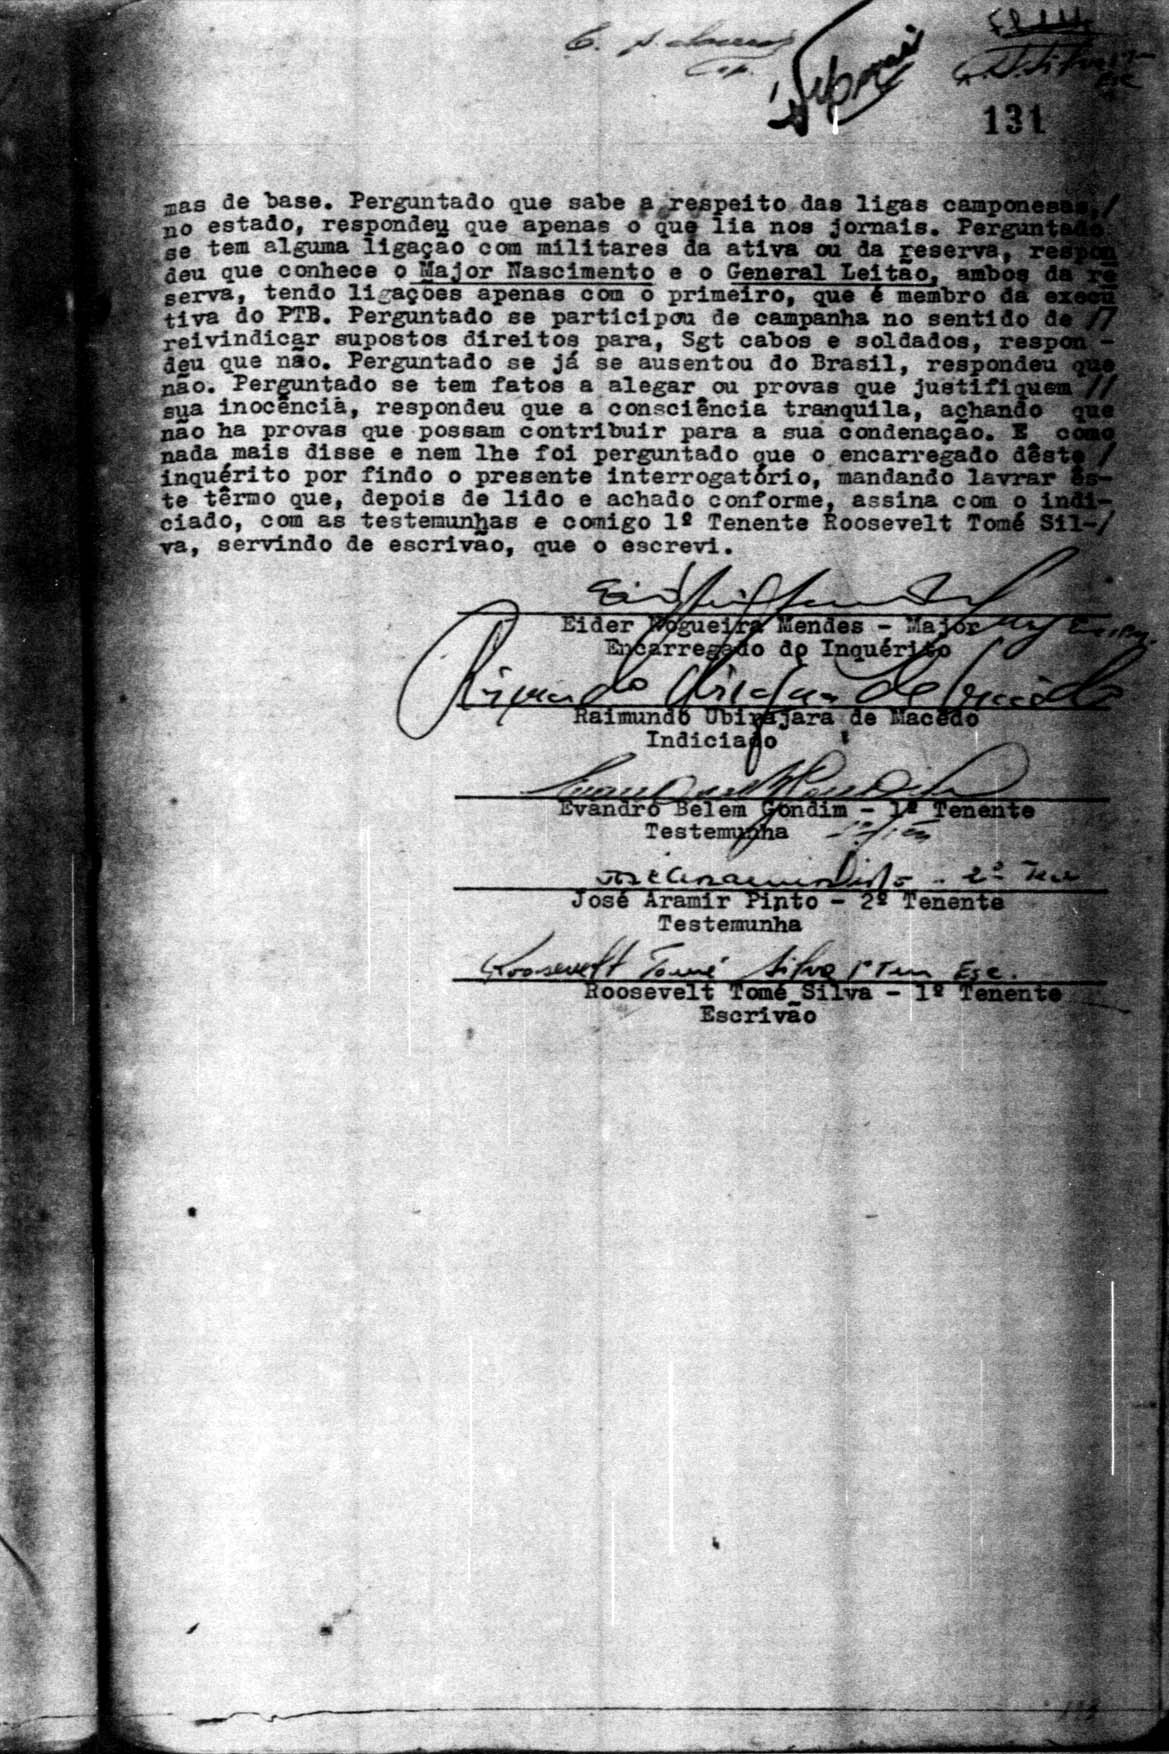 131
mas de base. Perguntado que sabe a respeito das ligas camponesas,/
no estado, respondeu que apenas o que lia nos jornais. Perguntado
se tem alguma ligação com militares da ativa ou da reserva, respon
deu que conhece o Major Nascimento e o General Leitão, ambos da re
serva, tendo ligações apenas com o primeiro, que é membro da execu
tiva do PTB. Perguntado se participou de campanha no sentido de //
reivindicar supostos direitos para, Sgt cabos e soldados, respon -
deu que não. Perguntado se já se ausentou do Brasil, respondeu que
não. Perguntado se tem fatos a alegar ou provas que justifiquem //
sua inocência, respondeu que a consciência tranquila, achando que
não ha provas que possam contribuir para a sua condenação. E como
nada mais disse e nem lhe foi perguntado que o encarregado dêste /
inquérito por findo o presente interrogatório, mandando lavrar ês-
te têrmo que, depois de lido e achado conforme, assina com o indi-
ciado, com as testemunhas e comigo 1º Tenente Roosevelt Tomé Sil-/
va, servindo de escrivão, que o escrevi.
Eider Nogueira Mendes - Major
Encarregado do Inquérito
Raimundo Ubirajara de Macedo
Raimundo Ubirajara de Macêdo
Indiciado
Evandro Belem Gondim - 1º Tenente
Testemunha
1º Ten
José Aramir Pinto - 2º Ten
José Aramir Pinto - 2º Tenente
Testemunha
Roosevelt Tomé Silva 1º Ten Esc.
Roosevelt Tomé Silva - 1º Tenente
Escrivão